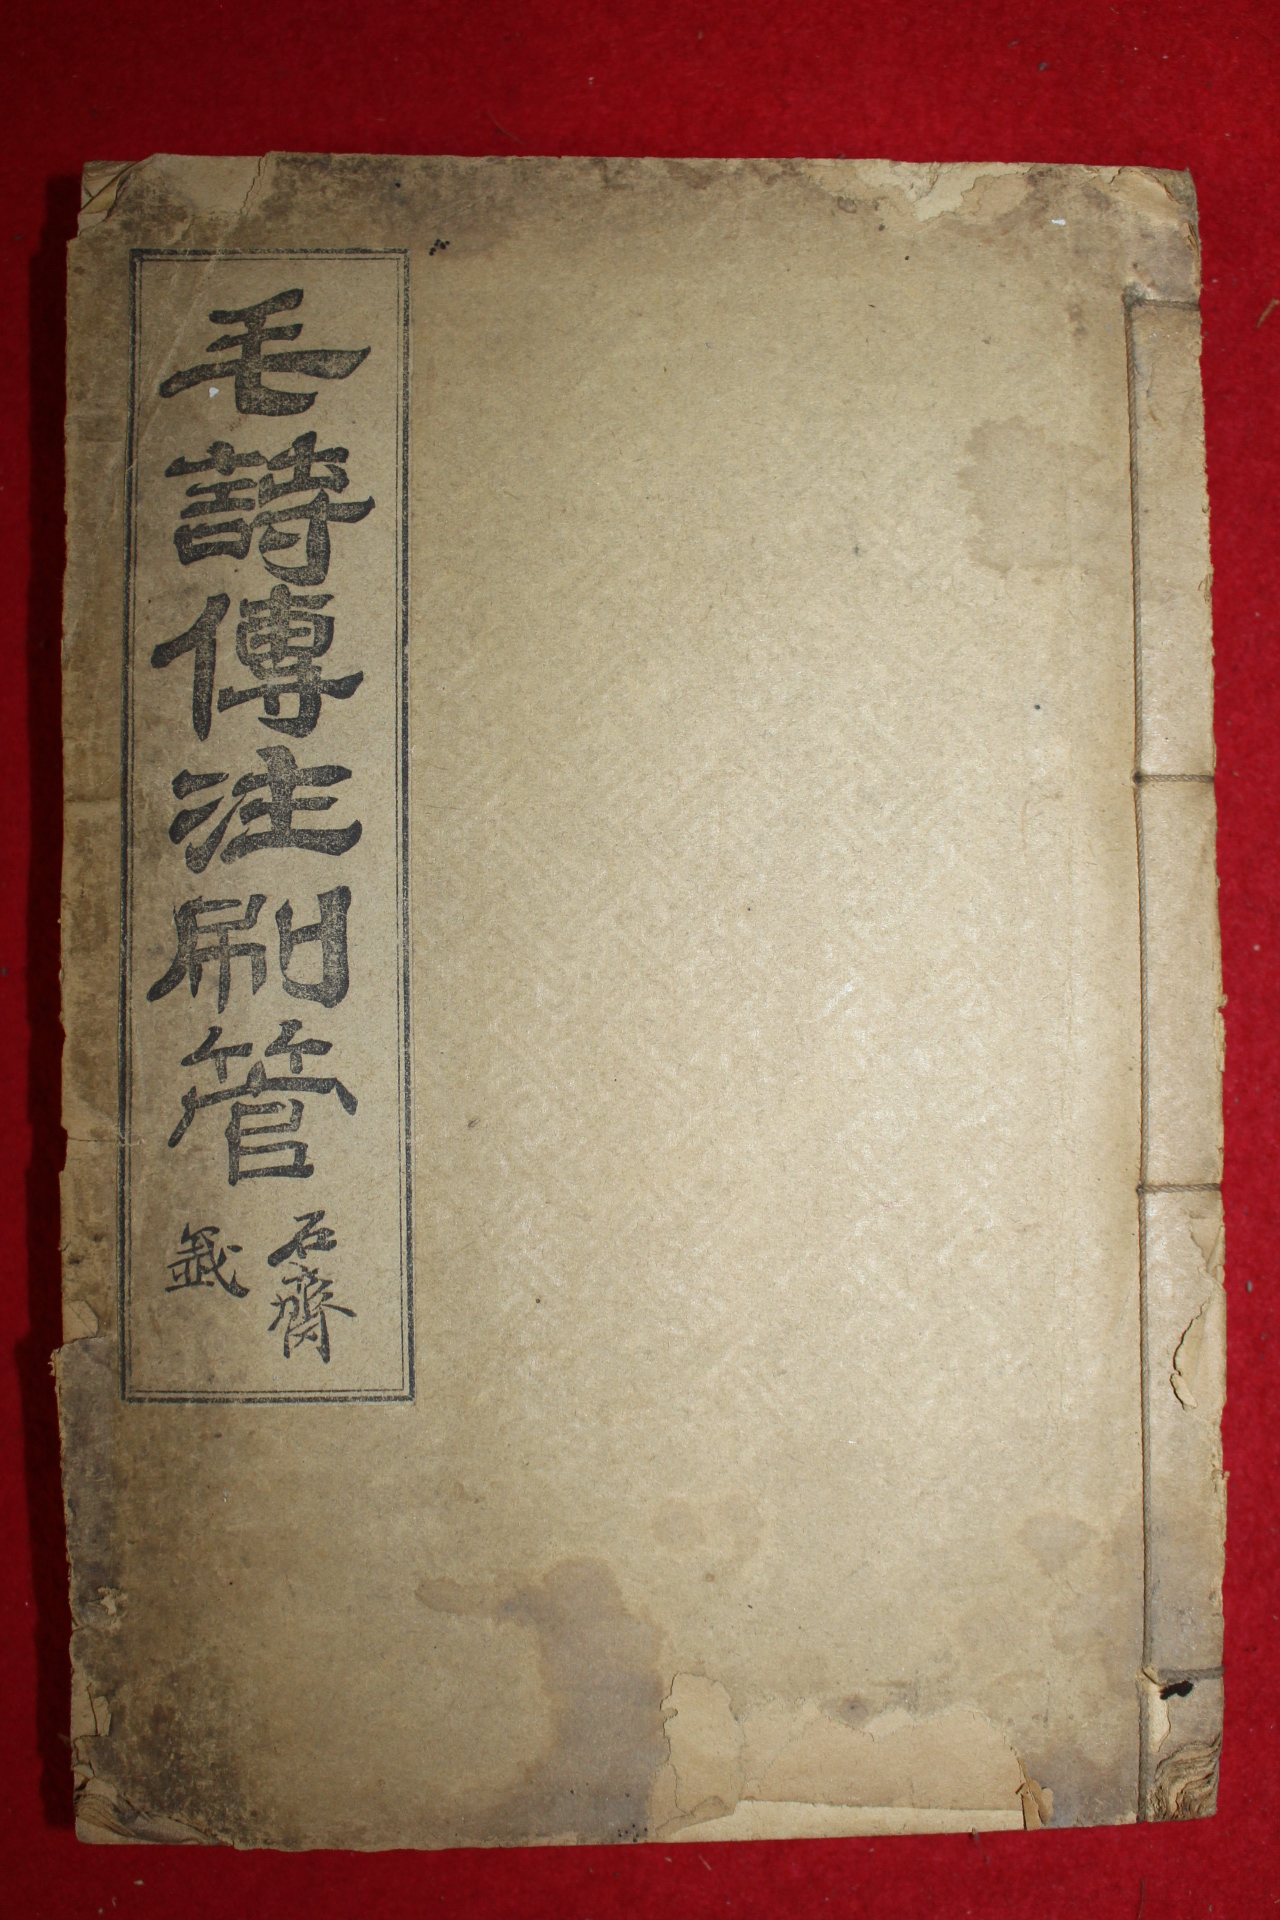 毛詩傳注刷管
石齋
籤